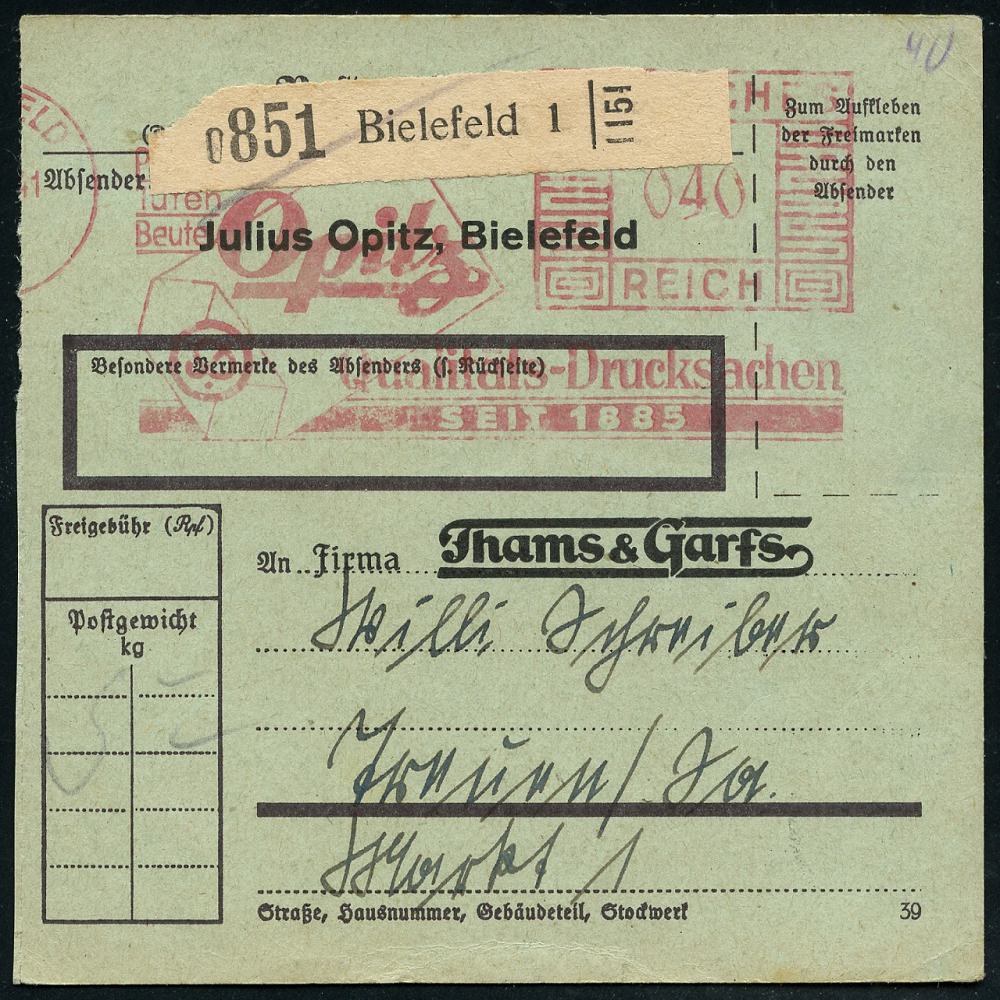 40
0851 Bielefeld 1 1151
Zum Aufkleben
der Freimarken
durch den
Absender
Absender
Tüten
Beutel
Opitz
040
REICH
Julius Opitz, Bielefeld
Besondere Vermerke des Absenders (s. Rückseite)
Qualitäts-Drucksachen
SEIT 1885
Freigebühr (Rpf)
An Firma Thams & Garfs
Postgewicht
kg
Willi Schreiber
Treuen / Sa.
Markt 1
Straße, Hausnummer, Gebäudeteil, Stockwerk
39